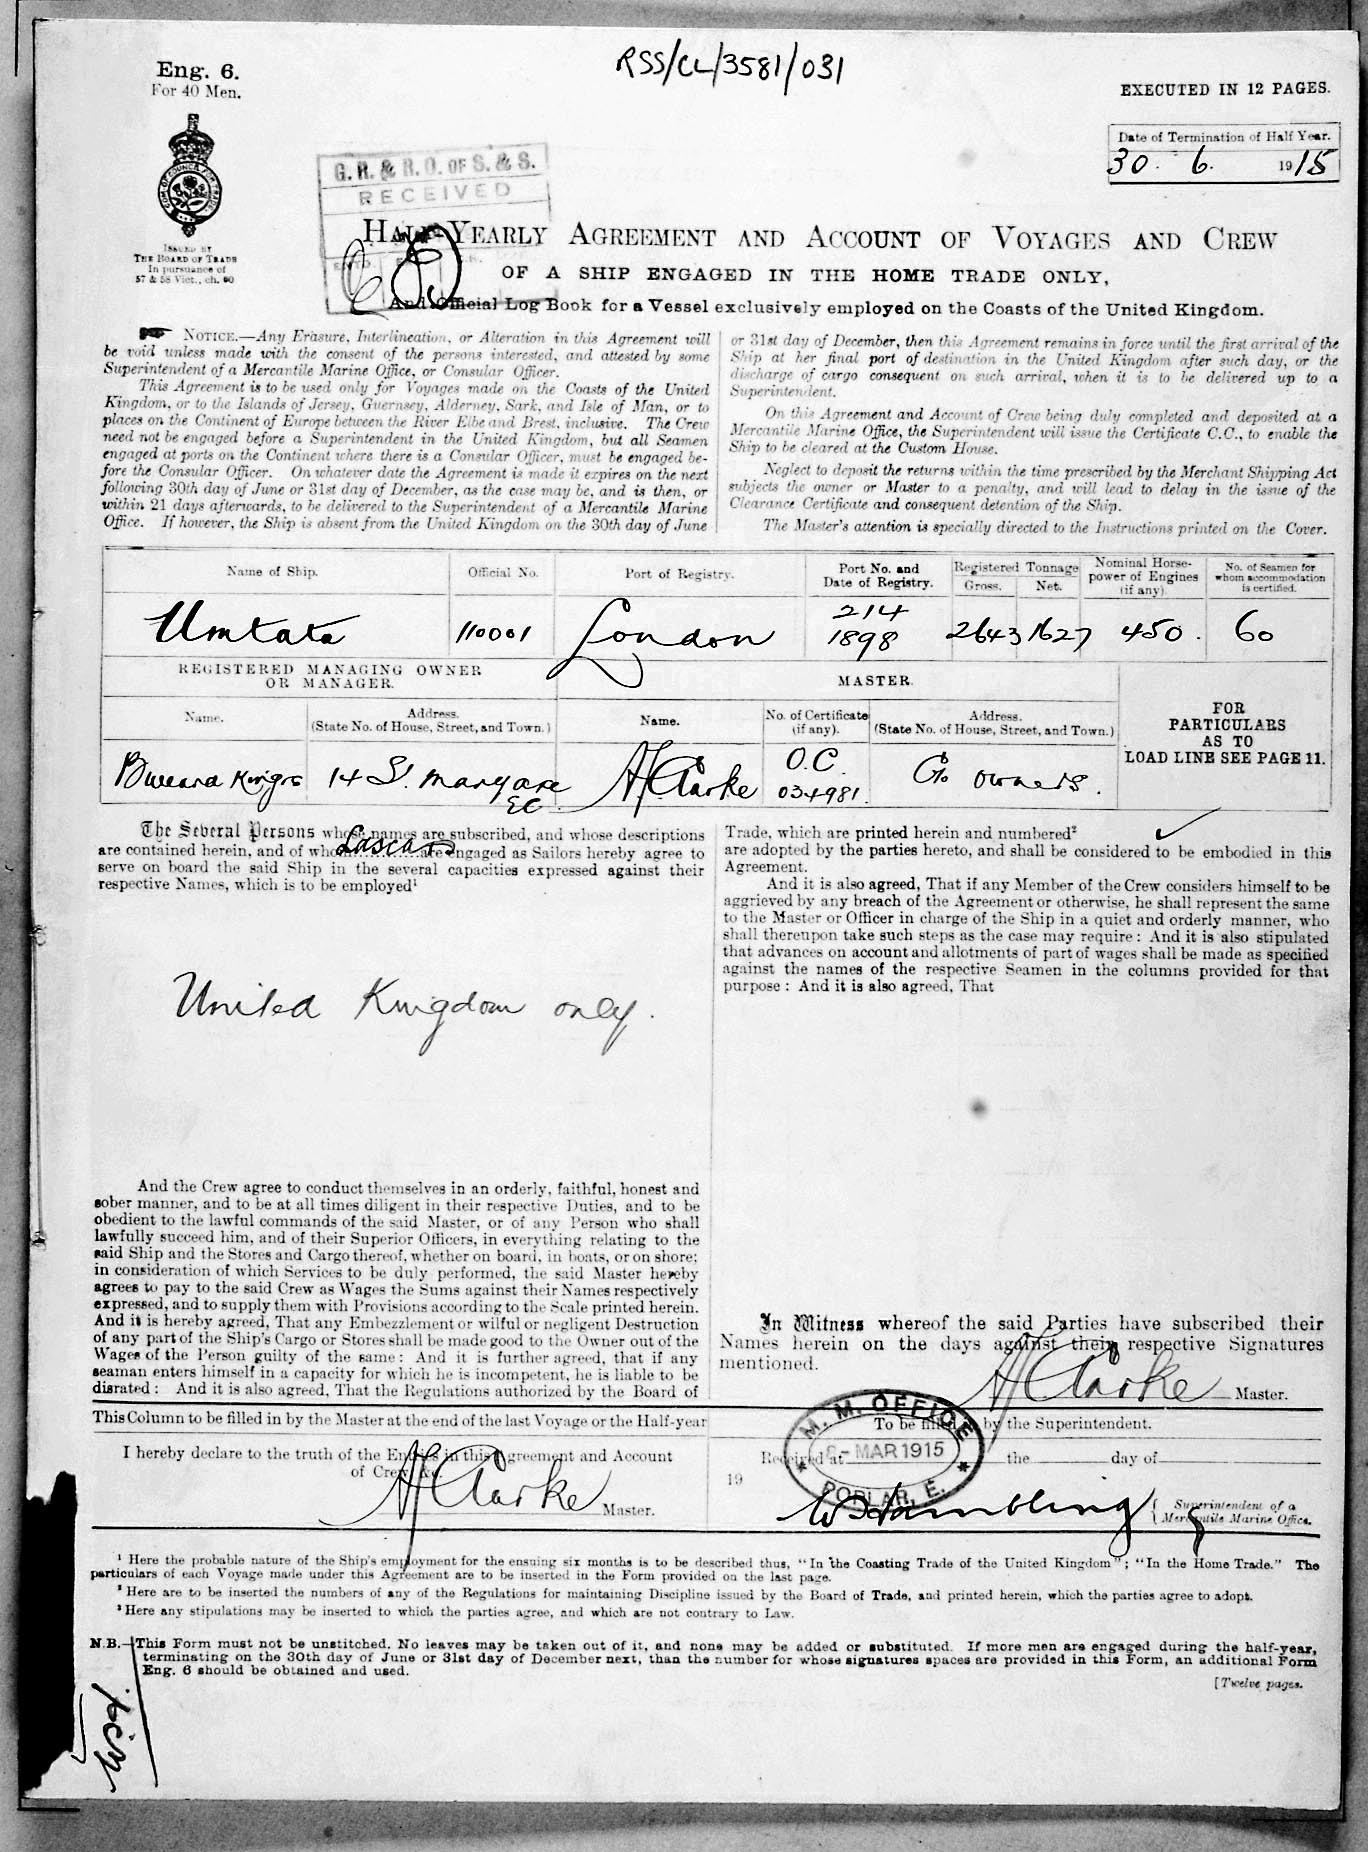 RSS/CL/3581/031
Eng. 6.
For 40 Men.
EXECUTED IN 12 PAGES.
Date of Termination of Half Year.
30. 6. 1915
G. R. & R. O. OF S. & S.
RECEIVED
ISSUED BY
THE BOARD OF TRADE
In pursuance of
57 & 58 Vict., ch. 60
HALF-YEARLY AGREEMENT AND ACCOUNT OF VOYAGES AND CREW
OF A SHIP ENGAGED IN THE HOME TRADE ONLY,
And Official Log Book for a Vessel exclusively employed on the Coasts of the United Kingdom.
NOTICE.—Any Erasure, Interlineation, or Alteration in this Agreement will
be void unless made with the consent of the persons interested, and attested by some
Superintendent of a Mercantile Marine Office, or Consular Officer.
This Agreement is to be used only for Voyages made on the Coasts of the United
Kingdom, or to the Islands of Jersey, Guernsey, Alderney, Sark, and Isle of Man, or to
places on the Continent of Europe between the River Elbe and Brest, inclusive. The Crew
need not be engaged before a Superintendent in the United Kingdom, but all Seamen
engaged at ports on the Continent where there is a Consular Officer, must be engaged be-
fore the Consular Officer. On whatever date the Agreement is made it expires on the next
following 30th day of June or 31st day of December, as the case may be, and is then, or
within 21 days afterwards, to be delivered to the Superintendent of a Mercantile Marine
Office. If however, the Ship is absent from the United Kingdom on the 30th day of June
or 31st day of December, then this Agreement remains in force until the first arrival of the
Ship at her final port of destination in the United Kingdom after such day, or the
discharge of cargo consequent on such arrival, when it is to be delivered up to a
Superintendent.
On this Agreement and Account of Crew being duly completed and deposited at a
Mercantile Marine Office, the Superintendent will issue the Certificate C.C., to enable the
Ship to be cleared at the Custom House.
Neglect to deposit the returns within the time prescribed by the Merchant Shipping Act
subjects the owner or Master to a penalty, and will lead to delay in the issue of the
Clearance Certificate and consequent detention of the Ship.
The Master's attention is specially directed to the Instructions printed on the Cover.
Name of Ship. Official No. Port of Registry. Port No. and Date of Registry. Registered Tonnage Gross. Net. Nominal Horse-power of Engines (if any). No. of Seamen for whom accommodation is certified.
Umtata 110001 London 214 1898 2643 1627 450. 60
REGISTERED MANAGING OWNER OR MANAGER.
MASTER.
Name. Address. (State No. of House, Street, and Town.) Name. No. of Certificate (if any). Address. (State No. of House, Street, and Town.)
FOR
PARTICULARS
AS TO
LOAD LINE SEE PAGE 11.
14 St. Mary axe EC. A Clarke O.C. 034981. C/o owners.
The Several Persons whose names are subscribed, and whose descriptions
are contained herein, and of whom Lascars are engaged as Sailors hereby agree to
serve on board the said Ship in the several capacities expressed against their
respective Names, which is to be employed¹
United Kingdom only.
And the Crew agree to conduct themselves in an orderly, faithful, honest and
sober manner, and to be at all times diligent in their respective Duties, and to be
obedient to the lawful commands of the said Master, or of any Person who shall
lawfully succeed him, and of their Superior Officers, in everything relating to the
said Ship and the Stores and Cargo thereof, whether on board, in boats, or on shore;
in consideration of which Services to be duly performed, the said Master hereby
agrees to pay to the said Crew as Wages the Sums against their Names respectively
expressed, and to supply them with Provisions according to the Scale printed herein.
And it is hereby agreed, That any Embezzlement or wilful or negligent Destruction
of any part of the Ship's Cargo or Stores shall be made good to the Owner out of the
Wages of the Person guilty of the same: And it is further agreed, that if any
seaman enters himself in a capacity for which he is incompetent, he is liable to be
disrated: And it is also agreed, That the Regulations authorized by the Board of
Trade, which are printed herein and numbered²
are adopted by the parties hereto, and shall be considered to be embodied in this
Agreement.
And it is also agreed, That if any Member of the Crew considers himself to be
aggrieved by any breach of the Agreement or otherwise, he shall represent the same
to the Master or Officer in charge of the Ship in a quiet and orderly manner, who
shall thereupon take such steps as the case may require: And it is also stipulated
that advances on account and allotments of part of wages shall be made as specified
against the names of the respective Seamen in the columns provided for that
purpose: And it is also agreed, That
In Witness whereof the said Parties have subscribed their
Names herein on the days against their respective Signatures
mentioned.
A Clarke Master.
This Column to be filled in by the Master at the end of the last Voyage or the Half-year
I hereby declare to the truth of the Entries in this Agreement and Account
of Crew, &c.
A Clarke Master.
To be filled by the Superintendent.
Received at the day of
19
M. M. OFFICE
8 - MAR 1915
POPLAR, E.
Superintendent of a
Mercantile Marine Office.
¹ Here the probable nature of the Ship's employment for the ensuing six months is to be described thus, "In the Coasting Trade of the United Kingdom"; "In the Home Trade." The
particulars of each Voyage made under this Agreement are to be inserted in the Form provided on the last page.
² Here are to be inserted the numbers of any of the Regulations for maintaining Discipline issued by the Board of Trade, and printed herein, which the parties agree to adopt.
³ Here any stipulations may be inserted to which the parties agree, and which are not contrary to Law.
N.B.—This Form must not be unstitched. No leaves may be taken out of it, and none may be added or substituted. If more men are engaged during the half-year,
terminating on the 30th day of June or 31st day of December next, than the number for whose signatures spaces are provided in this Form, an additional Form
Eng. 6 should be obtained and used.
[Twelve pages.